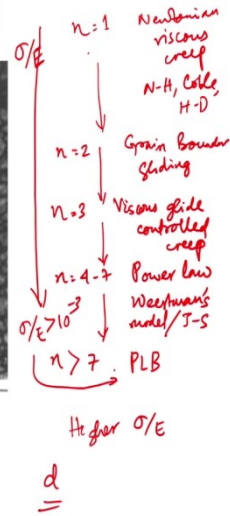 σ/E
n=1 Newtonian
viscous
creep
N-H, Coble,
H-D
n=2 Grain Boundary
Sliding
n=3 Viscous glide
controlled
creep
n=4-7 Power law
σ/E>10⁻³ Weertman's
model/J-S
n>7 PLB
Higher σ/E
d